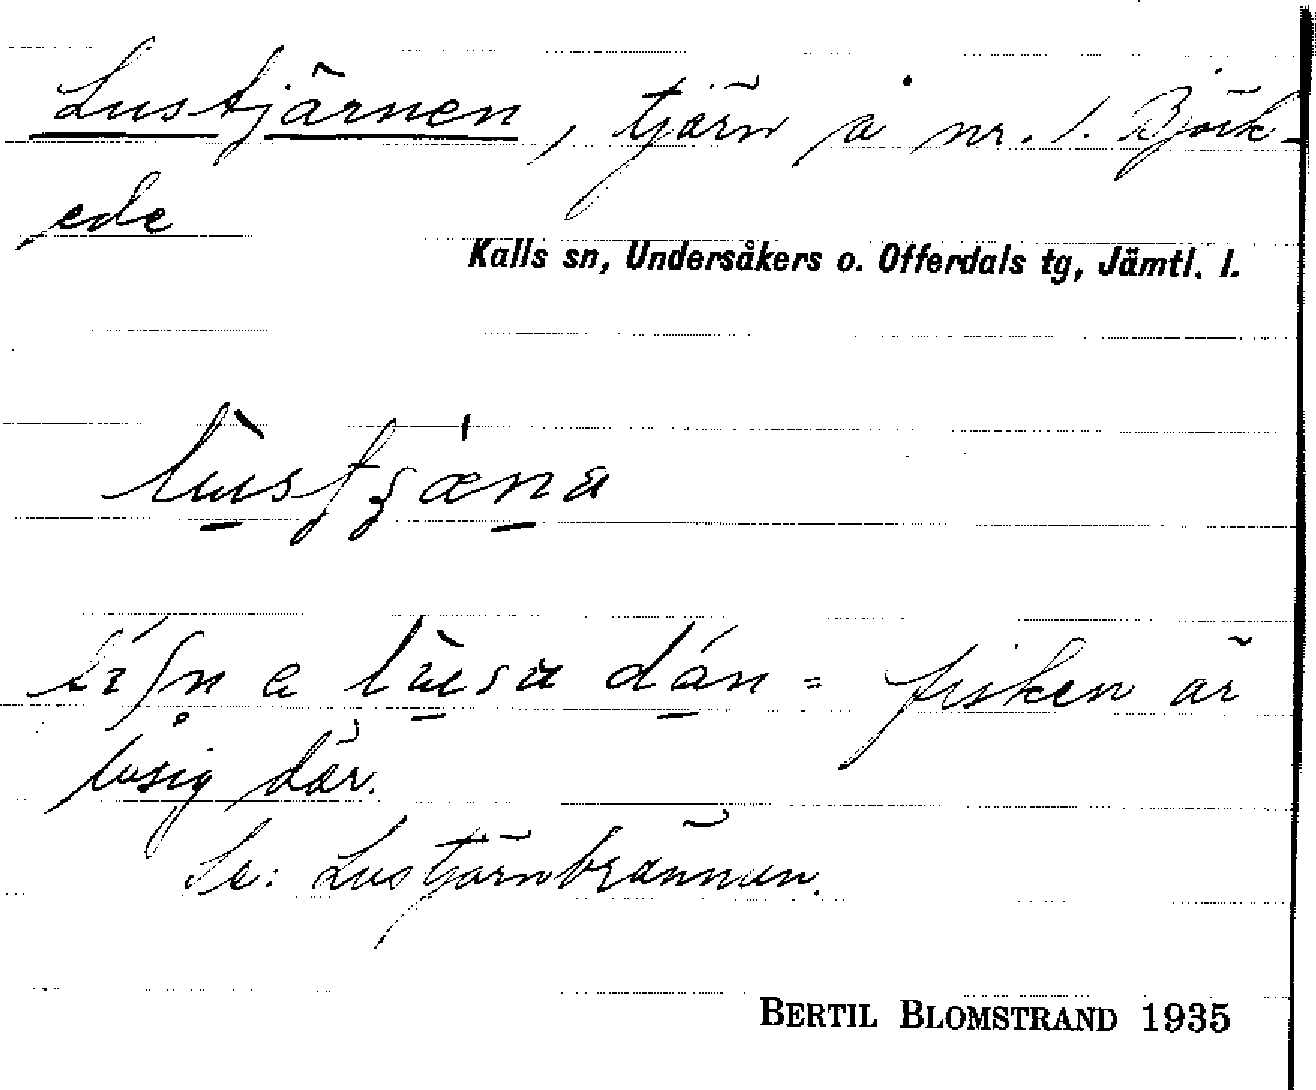 Lustjärnen, tjärn å nr. 1. Björk-
ede
Kalls sn, Undersåkers o. Offerdals tg, Jämtl. l.
e lusa dán = fisken är
lusig där.
Se: Lustjärnbrännan.
BERTIL BLOMSTRAND 1935